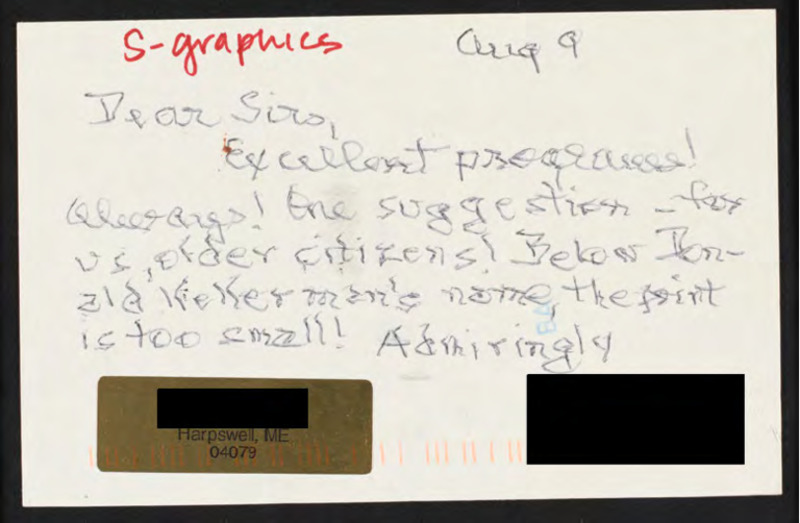 S-graphics
Aug 9
Dear Sirs,
Excellent programs!
Always! One suggestion - for
us, older citizens! Below Don-
ald Kekerman's name, the print
is too small! Admiringly
Harpswell, ME
04079